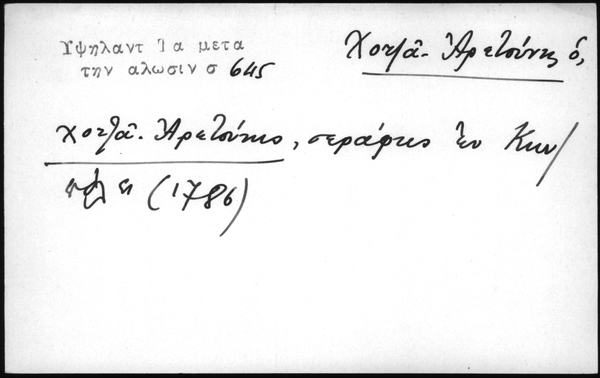 Υψηλαντ Τα μετα
την αλωσιν σ 645
Χοτζᾶ- Ἀρετούνης ὁ,
Χοτζᾶ- Ἀρετούνης, σεράφης ἐν Κων/
πόλει (1786)